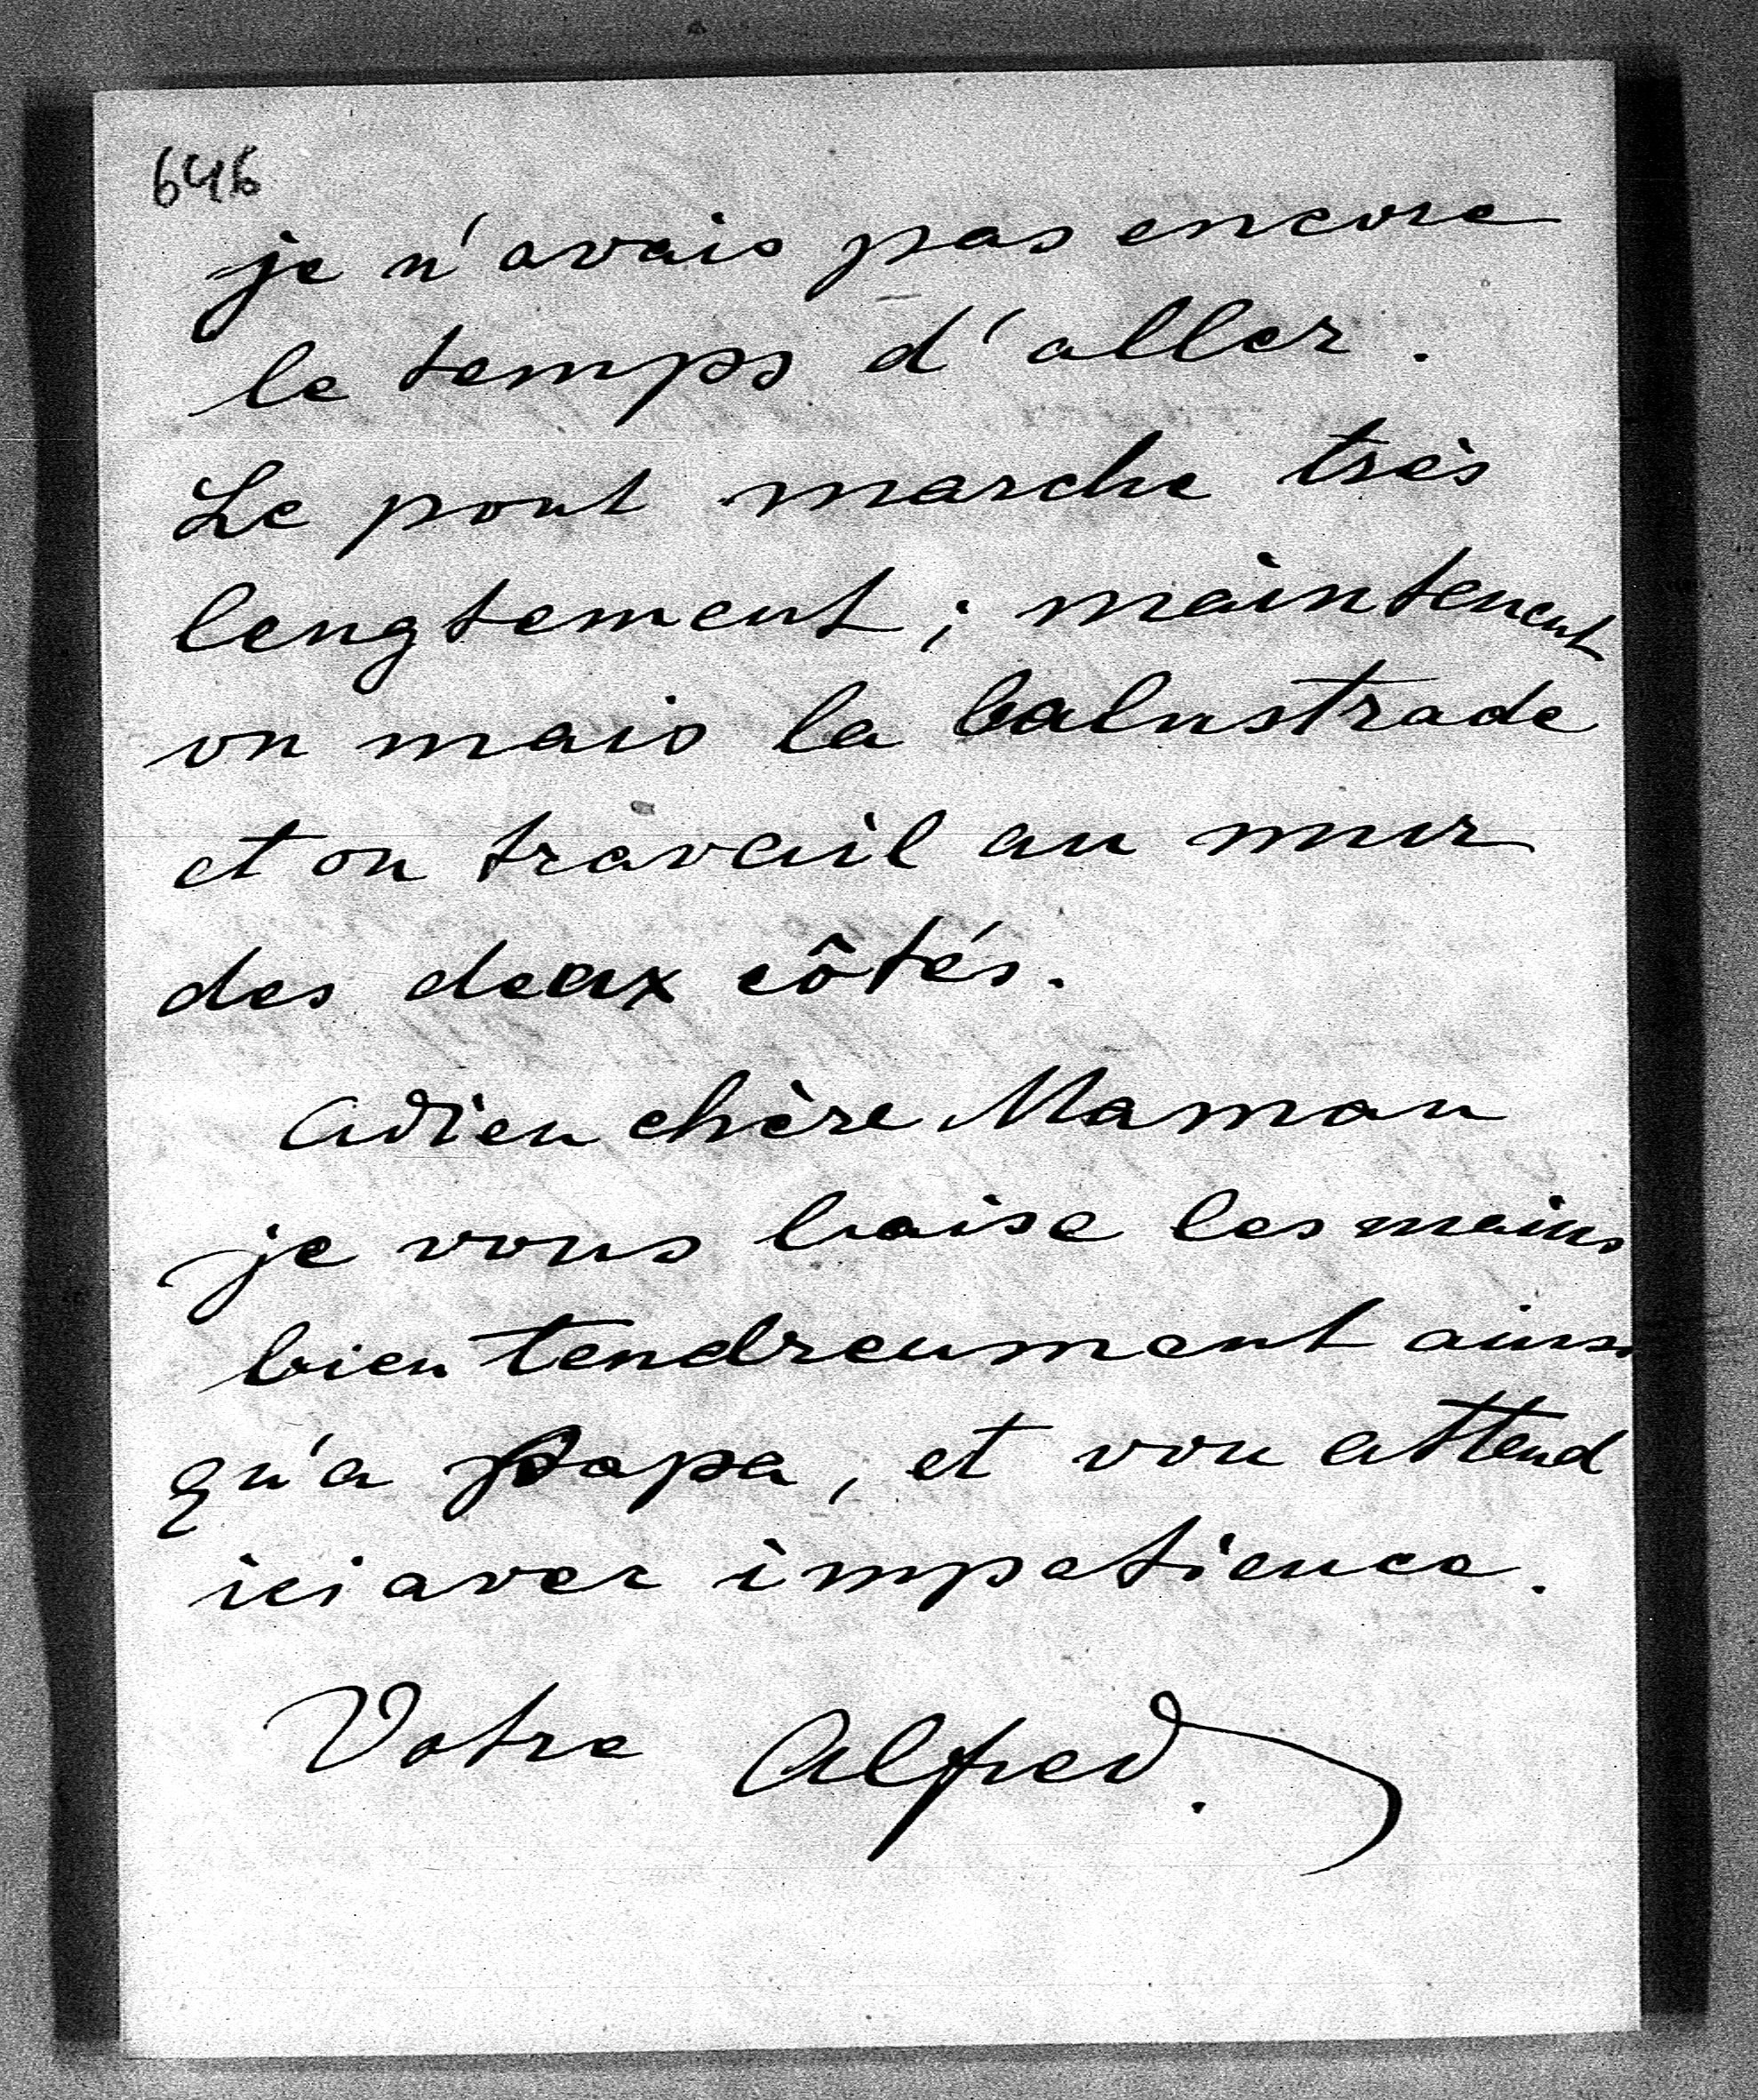 646
je n'avais pas encore
le temps d'aller.
Le pont marche très
lengtement ; maintenent
on mais la balustrade
et on travail au mur
des deux côtés.
Adieu chère Maman
je vous baise les mains
bien tendreument ainsi
qu'a papa, et vou attend
ici avec impatience.
Votre Alfred.